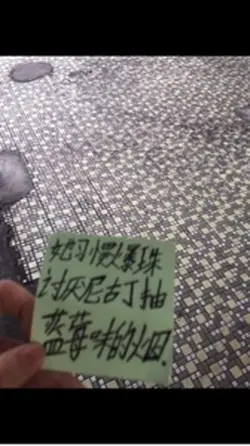 她习惯爆珠
讨厌尼古丁抽
蓝莓味的烟